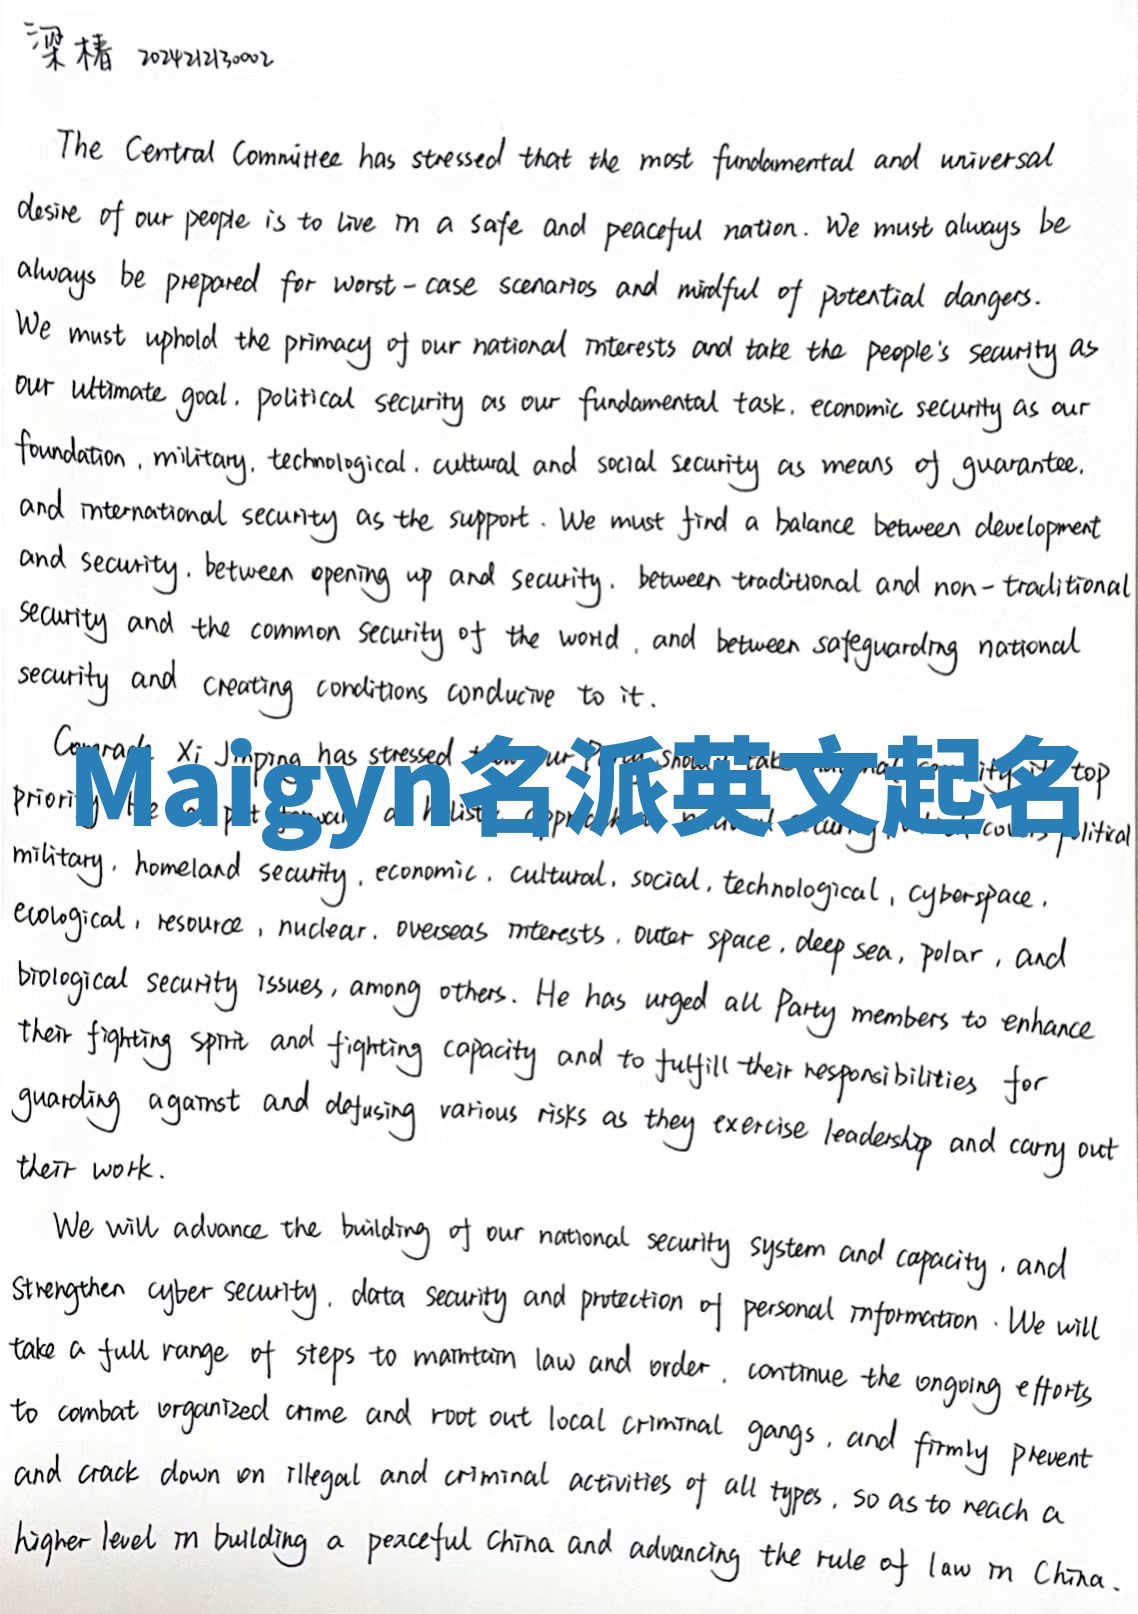 梁椿 2024212130002
The Central Committee has stressed that the most fundamental and universal
desire of our people is to live in a safe and peaceful nation. We must always be
always be prepared for worst-case scenarios and mindful of potential dangers.
We must uphold the primacy of our national interests and take the people's security as
our ultimate goal, political security as our fundamental task, economic security as our
foundation, military, technological, cultural and social security as means of guarantee,
and international security as the support. We must find a balance between development
and security, between opening up and security, between traditional and non-traditional
security and the common security of the world, and between safeguarding national
security and creating conditions conducive to it.
Comrade Xi Jinping has stressed top
Maigyn名派英文起名
priority political
military, homeland security, economic, cultural, social, technological, cyberspace,
ecological, resource, nuclear, overseas interests, outer space, deep sea, polar, and
biological security issues, among others. He has urged all Party members to enhance
their fighting spirit and fighting capacity and to fulfill their responsibilities for
guarding against and defusing various risks as they exercise leadership and carry out
their work.
We will advance the building of our national security system and capacity, and
strengthen cyber security, data security and protection of personal information. We will
take a full range of steps to maintain law and order, continue the ongoing efforts
to combat organized crime and root out local criminal gangs, and firmly prevent
and crack down on illegal and criminal activities of all types, so as to reach a
higher level in building a peaceful China and advancing the rule of law in China.